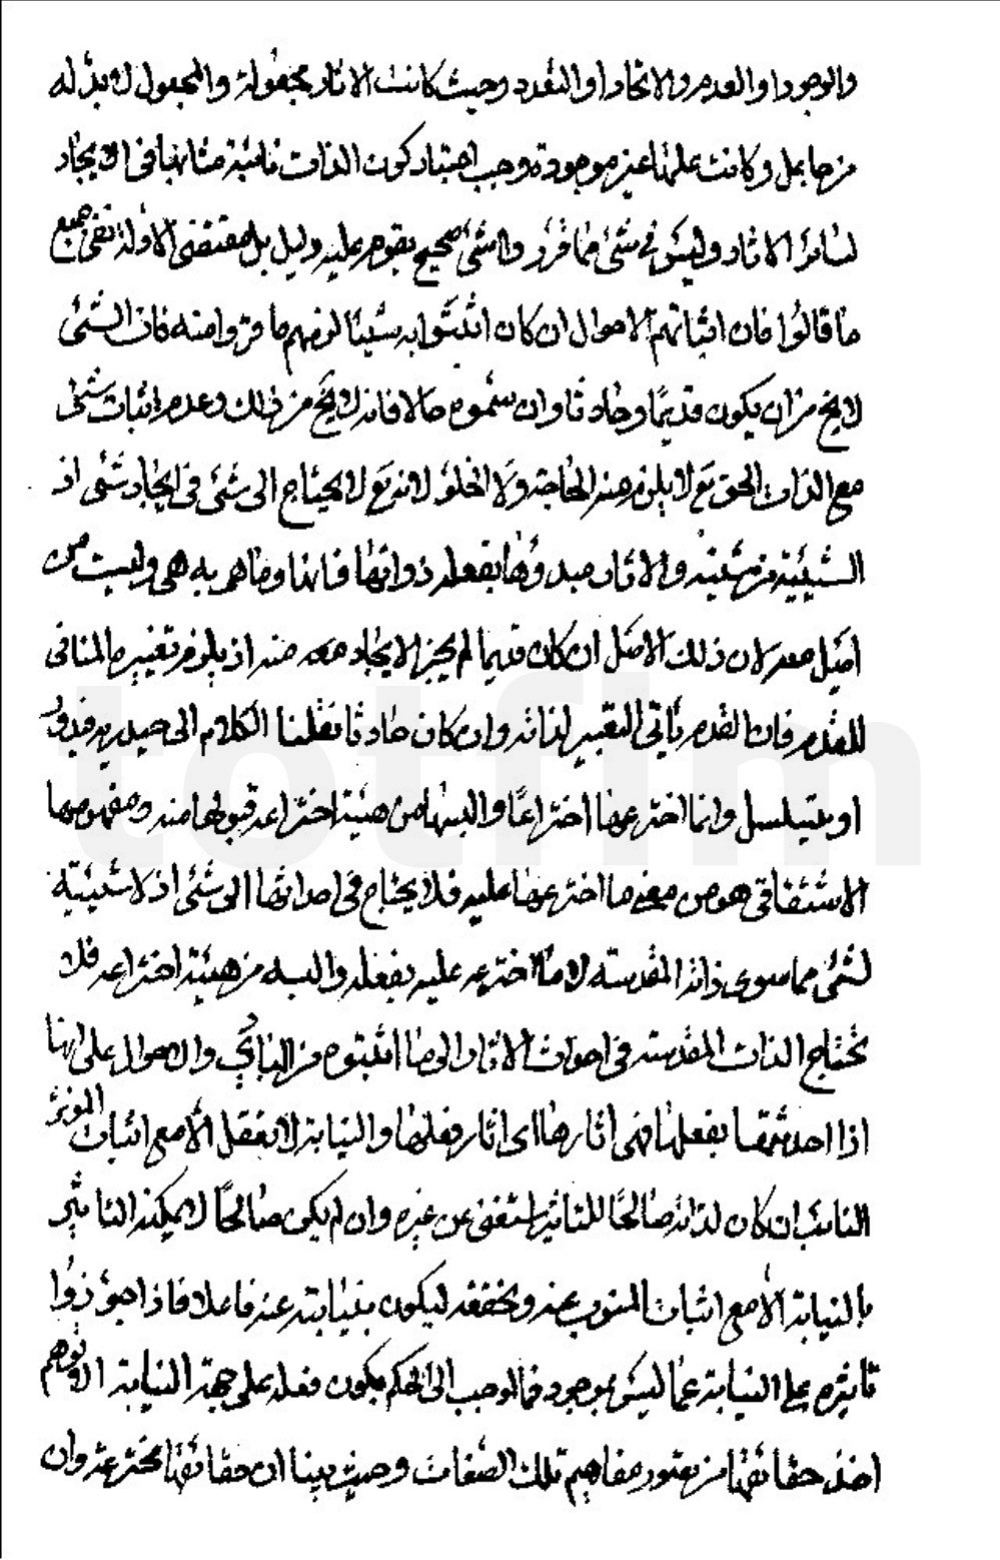 والوجود او العدم والاتحاد او التعدد وحيث كانت الاثار مجعولة والمجعول لا بد له
من جاعل وكانت علمنا غير موجودة وجب اعتبار كون الذات نائبة منابها في الايجاد
لسائر الاثار وليس في شئ مما قرر والشئ صحيح يقوم عليه دليل بل مقتضى الادلة نفى جميع
ما قالوا فان اثباتهم الاحوال ان كان اثبتوا به شيئا لزمهم ما فروا منه فان الشئ
لا يخ من ان يكون قديما وحادثا وان سموه حالا فانه لا يخ من ذلك وعدم اثبات شئ
مع الذات الحق تع لا يلزم منه الحاجة ولا الخلو لانه تع لا يحتاج الى شئ في ايجاد شئ اذ
الشيئية من مشيته والاثار مبدؤها بفعله ذواتها فانها وما هي به هي وليست من
اصل معه لان ذلك الاصل ان كان قديما لم يجز الايجاد معه منه اذ يلزم تغييره المنافى
للقدم فان القدم ياتي التغيير لذاته وان كان حادثا نقلنا الكلام الى فيدور
او يتسلسل وانما اخترعها اختراعا والبسها من هيئة اختراعه قبولها منه ومفهومها
الاشتقاقي هو من معنى ما اخترعها عليه فلا يحتاج في احداثها الى شئ اذ لا شيئية
لشئ مما سوى ذاته المقدسة الا ما اخترعه عليه بفعله والبسه من هيئة اختراعه فلا
تحتاج الذات المقدسة في احداث الاثار الى ما اثبتوه من المبادي والاحوال على انها
اذا احدثتها بفعلها فهى اثارها اى اثار فعلها والنيابة لا تعقل الا مع اثبات المؤثر
النائب ان كان لذاته صالحا للتاثير استغنى عن غيره وان لم يكن صالحا لا يمكنه التاثير
بالنيابة الا مع اثبات المنوب عنه وتحققه ليكون بنيابته عنه فاعلا فاذا جوزوا
تاثيره على النيابة عما ليس بموجود فما الموجب الى الحكم بكون فعله على جهة النيابة الا توهم
اخذ حقائقها من تصور مفاهيم تلك الصفات وحيث بينا ان حقائقها مخترعة وان